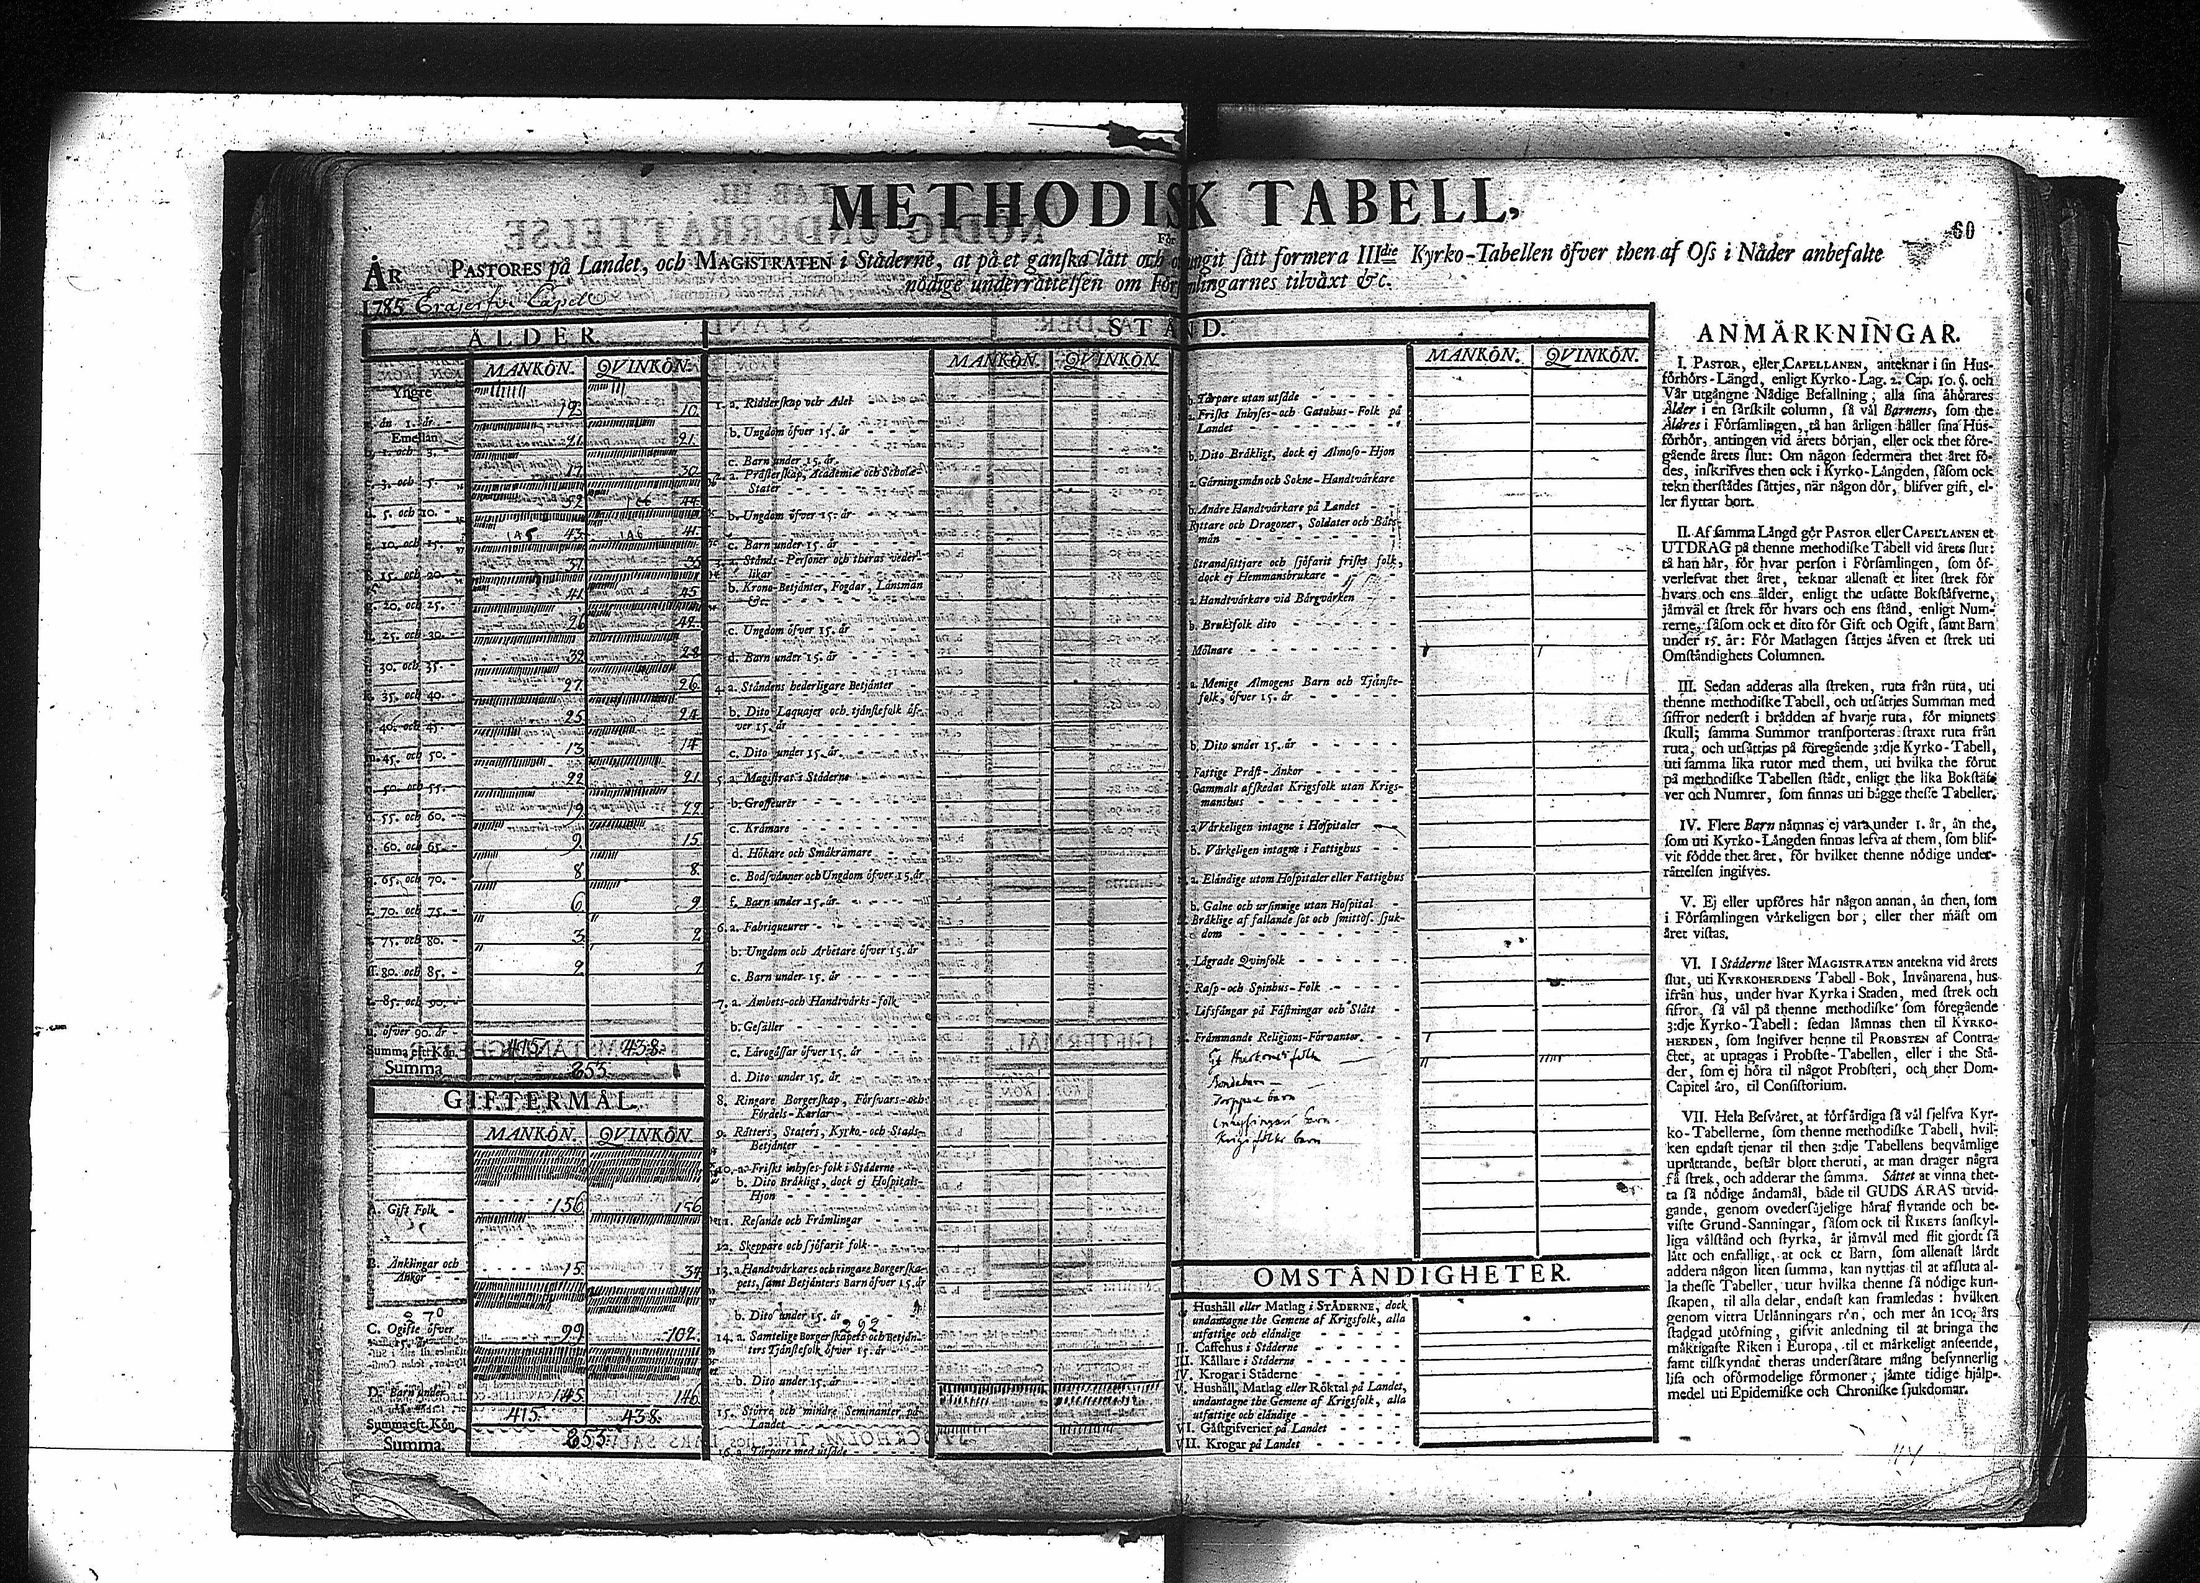 METHODISK TABELL,
För
ÅR PASTORES på Landet, och MAGISTRATEN i Städerne, at på et ganska lätt och sätt formera IIIdie Kyrko-Tabellen öfver then af Oss i Nåder anbefalte
nödige underrättelsen om Församlingarnes tilväxt &c.
60
1785
ÅLDER
MANKÖN. QVINKÖN.
Yngre
än 1. år 12 10
Emellan
1. och 3. 21 21
3. och 5. 17 30
5. och 10. 52 44
10. och 15. 145 43 146 41
15. och 20. 37 35
20. och 25. 41 45
25. och 30. 26 42
30. och 35. 39 28
35. och 40. 27 26
40. och 45. 25 24
45. och 50. 13 14
50. och 55. 22 21
55. och 60. 19 22
60. och 65. 9 15
65. och 70. 8 8
70. och 75. 6 9
75. och 80. 3 2
80. och 85. 2 1
85. och 90.
öfver 90. år
Summa eft. Kön. 415 438
Summa 853
GIFTERMÅL
MANKÖN. QVINKÖN.
A. Gift Folk 156 156
B. Änklingar och Änkor 15 34
C. Ogifte öfver 15. år 99 102
D. Barn under 145 146
Summa eft. Kön. 415 438
Summa. 853
STÅND.
MANKÖN. QVINKÖN.
1. a. Ridderskap och Adel
b. Ungdom öfver 15. år
c. Barn under 15. år
a. Prästerskap, Academiæ och Scholæ-
Stater
b. Ungdom öfver 15. år
c. Barn under 15. år
a. Stånds-Personer och theras vederlikar
b. Krono-Betjänter, Fogdar, Länsmän
&c.
c. Ungdom öfver 15. år
d. Barn under 15. år
4. a. Ståndens hederligare Betjänter
b. Dito Laquajer och tjänstefolk öfver 15. år
c. Dito under 15. år
5. a. Magistrat i Städerne
b. Grosseurer
c. Krämare
d. Hökare och Småkrämare
e. Bodsvänner och Ungdom öfver 15. år
f. Barn under 15. år
6. a. Fabriqueurer
b. Ungdom och Arbetare öfver 15. år
c. Barn under 15. år
7. a. Ämbets- och Handtvärks-folk
b. Gesäller
c. Lärogåssar öfver 15. år
d. Dito under 15. år
8. Ringare Borgerskap, Försvars- och
Fördels-Karlar
9. Rätters, Staters, Kyrko- och Stads-
Betjänter
10. a. Friskt inhyses-folk i Städerne
b. Dito Bräkligt, dock ej Hospitals-
Hjon
11. Resande och Främlingar
12. Skeppare och sjöfarit folk
13. a. Handtvärkares och ringare Borgerska-
pets, samt Betjänters Barn öfver 15. år
b. Dito under 15. år
292
14. a. Samtelige Borgerskapets och Betjän-
ters Tjänstefolk öfver 15. år
b. Dito under 15. år
15. Större och mindre Seminanter, på
Landet
16. a. Torpare med utsäde
MANKÖN. QVINKÖN.
b. Torpare utan utsäde
a. Friskt Inhyses- och Gatuhus-Folk på
Landet
b. Dito Bräkligt, dock ej Almoso-Hjon
a. Gärningsmän och Sokne-Handtvärkare
b. Andre Handtvärkare på Landet
Ryttare och Dragoner, Soldater och Båts-
män
Strandsittjare och sjöfarit friskt folk,
dock ej Hemmansbrukare
a. Handtvärkare vid Bärgvärken
b. Bruksfolk dito
Mölnare
a. Menige Almogens Barn och Tjänste-
folk, öfver 15. år
b. Dito under 15. år
Fattige Präst-Änkor
Gammalt afskedat Krigsfolk utan Krigs-
manshus
a. Värkeligen intagne i Hospitaler
b. Värkeligen intagne i Fattighus
a. Eländige utom Hospitaler eller Fattighus
b. Galne och ursinnige utan Hospital
Bräklige af fallande sot och smittos. sjuk-
dom
Lägrade Qvinfolk
Rasp- och Spinhus-Folk
Lifsfångar på Fästningar och Slått
Främmande Religions-Förvanter.
Bondebarn
Torppare barn
Inhysingars barn
Krigsfolks barn
OMSTÄNDIGHETER.
I. Hushåll eller Matlag i STÄDERNE, dock
undantagne the Gemene af Krigsfolk, alla
utfattige och eländige
II. Caffehus i Städerne
III. Källare i Städerne
IV. Krogar i Städerne
V. Hushåll, Matlag eller Röktal på Landet,
undantagne the Gemene af Krigsfolk, alla
utfattige och eländige
VI. Gästgifverier på Landet
VII. Krogar på Landet
ANMÄRKNINGAR.
I. PASTOR, eller CAPELLANEN, anteknar i sin Hus-
förhörs-Längd, enligt Kyrko-Lag. 2. Cap. 10. §. och
Vår utgångne Nådige Befallning, alla sina åhörares
Ålder i en särskilt column, så väl Barnens, som the
Äldres i Församlingen, tå han årligen håller sina Hus-
förhör, antingen vid årets början, eller ock thet före-
gående årets slut: Om någon sedermera thet året fö-
des, inskrifves then ock i Kyrko-Längden, såsom ock
tekn therstädes sättjes, när någon dör, blifver gift, el-
ler flyttar bort.
II. Af samma Längd gör PASTOR eller CAPELLANEN et
UTDRAG på thenne methodiske Tabell vid årets slut:
tå han här, för hvar person i Församlingen, som öf-
verlefvat thet året, teknar allenast et litet strek för
hvars och ens ålder, enligt the utsatte Bokstäfverne,
jämväl et strek för hvars och ens stånd, enligt Num-
rerne, såsom ock et dito för Gift och Ogift, samt Barn
under 15. år: För Matlagen sättjes äfven et strek uti
Omständighets Columnen.
III. Sedan adderas alla streken, ruta från ruta, uti
thenne methodiske Tabell, och utsättjes Summan med
siffror nederst i brädden af hvarje ruta, för minnets
skull; samma Summor transporteras straxt ruta från
ruta, och utsättjas på föregående 3:dje Kyrko-Tabell,
uti samma lika rutor med them, uti hvilka the förut
på methodiske Tabellen städt, enligt the lika Bokstäf-
ver och Numrer, som finnas uti bägge thesse Tabeller.
IV. Flere Barn nämnas ej vara under 1. år, än the,
som uti Kyrko-Längden finnas lefva af them, som blif-
vit födde thet året, för hvilket thenne nödige under-
rättelsen ingifves.
V. Ej eller upföres här någon annan, än then, som
i Församlingen värkeligen bor, eller ther mäst om
året vistas.
VI. I Städerne låter MAGISTRATEN antekna vid årets
slut, uti KYRKOHERDENS Tabell-Bok, Invånarena, hus
ifrån hus, under hvar Kyrka i Staden, med strek och
siffror, så väl på thenne methodiske som föregående
3:dje Kyrko-Tabell: sedan lämnas then til KYRKO-
HERDEN, som ingifver henne til PROBSTEN af Contra-
ctet, at uptagas i Probste-Tabellen, eller i the Stä-
der, som ej höra til något Probsteri, och ther Dom-
Capitel äro, til Consistorium.
VII. Hela Besväret, at förfärdiga så väl sjelfva Kyr-
ko-Tabellerne, som thenne methodiske Tabell, hvil-
ken endast tjenar til then 3:dje Tabellens beqvämlige
uprättande, består blott theruti, at man drager några
få strek, och adderar the samma. Sättet at vinna thet-
ta så nödige ändamål, både til GUDS ÄRAS utvid-
gande, genom ovedersäjelige häraf flytande och be-
viste Grund-Sanningar, såsom ock til RIKETS sanskyl-
liga välstånd och styrka, är jämväl med flit gjordt så
lätt och enfalligt, at ock et Barn, som allenast lärdt
addera någon liten summa, kan nyttjas til at affluta al-
la thesse Tabeller, utur hvilka thenne så nödige kun-
skapen, til alla delar, endast kan framledas: hvilken
genom vittra Utlänningars rön, och mer än 100. års
stadgad utöfning, gifvit anledning til at bringa the
mäktigaste Riken i Europa, til et märkeligt anseende,
samt tilskyndat theras undersåtare mång besynnerlig
lisa och oförmodelige förmoner, jämte tidige hjälp-
medel uti Epidemiske och Chroniske sjukdomar.